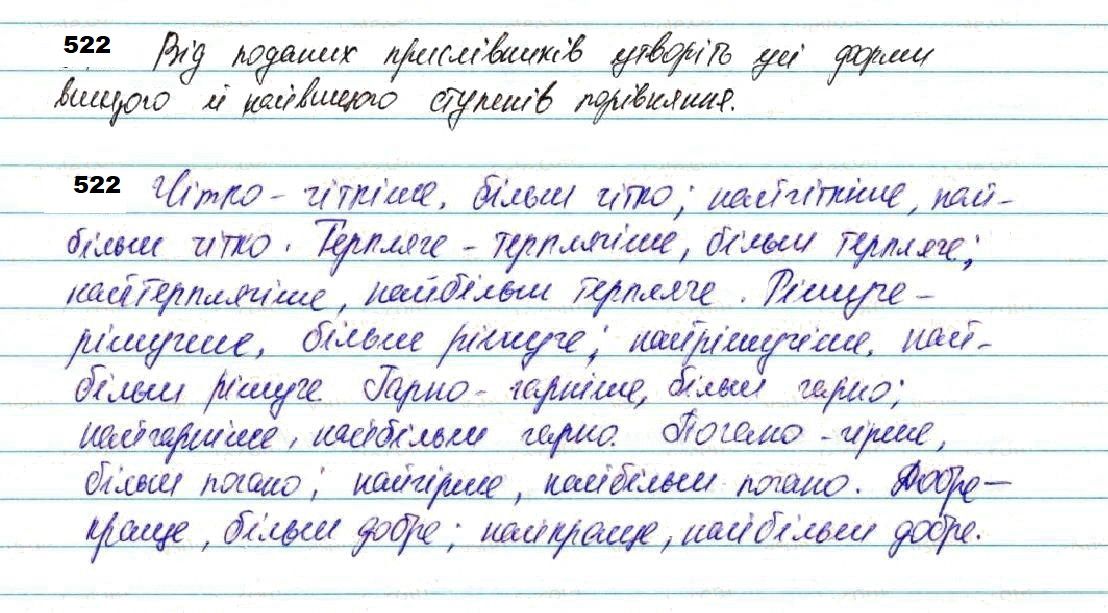 522 Від поданих прислівників утворіть усі форми
вищого й найвищого ступенів порівняння.
522 Чітко - чіткіше, більш чітко; найчіткіше, най-
більш чітко. Терпляче - терплячіше, більш терпляче;
найтерплячіше, найбільш терпляче. Рішуче -
рішучіше, більше рішуче; найрішучіше, най-
більш рішуче Гарно - гарніше, більш гарно;
найгарніше, найбільш гарно. Погано - гірше,
більш погано; найгірше, найбільш погано. Добре -
краще, більш добре; найкраще, найбільш добре.